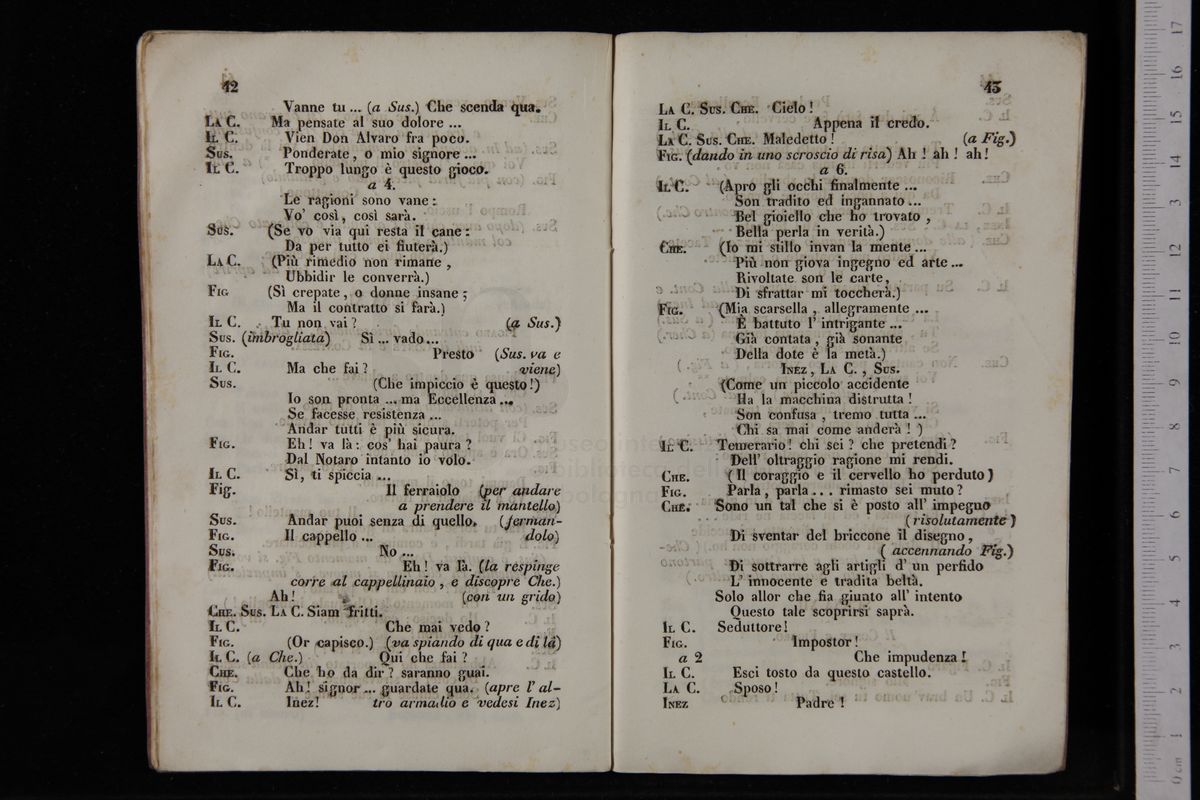 42
Vanne tu ... (a Sus.) Che scenda qua.
LA C. Ma pensate al suo dolore ...
IL C. Vien Don Alvaro fra poco.
SUS. Ponderate, o mio signore ...
IL C. Troppo lungo è questo gioco.
a 4.
Le ragioni sono vane:
Vo' così, così sarà.
SUS. (Se vo via qui resta il cane:
Da per tutto ei fiuterà.)
LA C. (Più rimedio non rimane,
Ubbidir le converrà.)
FIG (Sì crepate, o donne insane;
Ma il contratto si farà.)
IL C. Tu non vai? (a Sus.)
SUS. (imbrogliata) Sì ... vado ...
FIG. Presto (Sus. va e
IL C. Ma che fai? viene)
SUS. (Che impiccio è questo!)
Io son pronta ... ma Eccellenza ...
Se facesse resistenza ...
Andar tutti è più sicura.
FIG. Eh! va là: cos' hai paura?
Dal Notaro intanto io volo.
IL C. Sì, ti spiccia ...
Fig. Il ferraiolo (per andare
a prendere il mantello)
SUS. Andar puoi senza di quello. (ferman-
FIG. Il cappello ... dolo)
SUS. No ...
FIG. Eh! va là. (la respinge
corre al cappellinaio, e discopre Che.)
Ah! (con un grido)
CHE. SUS. LA C. Siam fritti.
IL C. Che mai vedo?
FIG. (Or capisco.) (va spiando di qua e di là)
IL C. (a Che.) Qui che fai?
CHE. Che ho da dir? saranno guai.
FIG. Ah! signor ... guardate qua. (apre l' al-
IL C. Inez! tro armadio e vedesi Inez)
43
LA C. SUS. CHE. Cielo!
IL C. Appena il credo.
LA C. SUS. CHE. Maledetto! (a Fig.)
FIG. (dando in uno scroscio di risa) Ah! ah! ah!
a 6.
IL C. (Apro gli occhi finalmente ...
Son tradito ed ingannato ...
Bel gioiello che ho trovato,
Bella perla in verità.)
CHE. (Io mi stillo invan la mente ...
Più non giova ingegno ed arte ...
Rivoltate son le carte,
Di sfrattar mi toccherà.)
FIG. (Mia scarsella, allegramente ...
È battuto l' intrigante ...
Già contata, già sonante
Della dote è la metà.)
INEZ, LA C., SUS.
(Come un piccolo accidente
Ha la macchina distrutta!
Son confusa, tremo tutta ...
Chi sa mai come anderà!)
IL C. Temerario! chi sei? che pretendi?
Dell' oltraggio ragione mi rendi.
CHE. (Il coraggio e il cervello ho perduto)
FIG. Parla, parla ... rimasto sei muto?
CHE. Sono un tal che si è posto all' impegno
(risolutamente)
Di sventar del briccone il disegno,
(accennando Fig.)
Di sottrarre agli artigli d' un perfido
L' innocente e tradita beltà.
Solo allor che fia giunto all' intento
Questo tale scoprirsi saprà.
IL C. Seduttore!
FIG. Impostor!
a 2 Che impudenza!
IL C. Esci tosto da questo castello.
LA C. Sposo!
INEZ Padre!